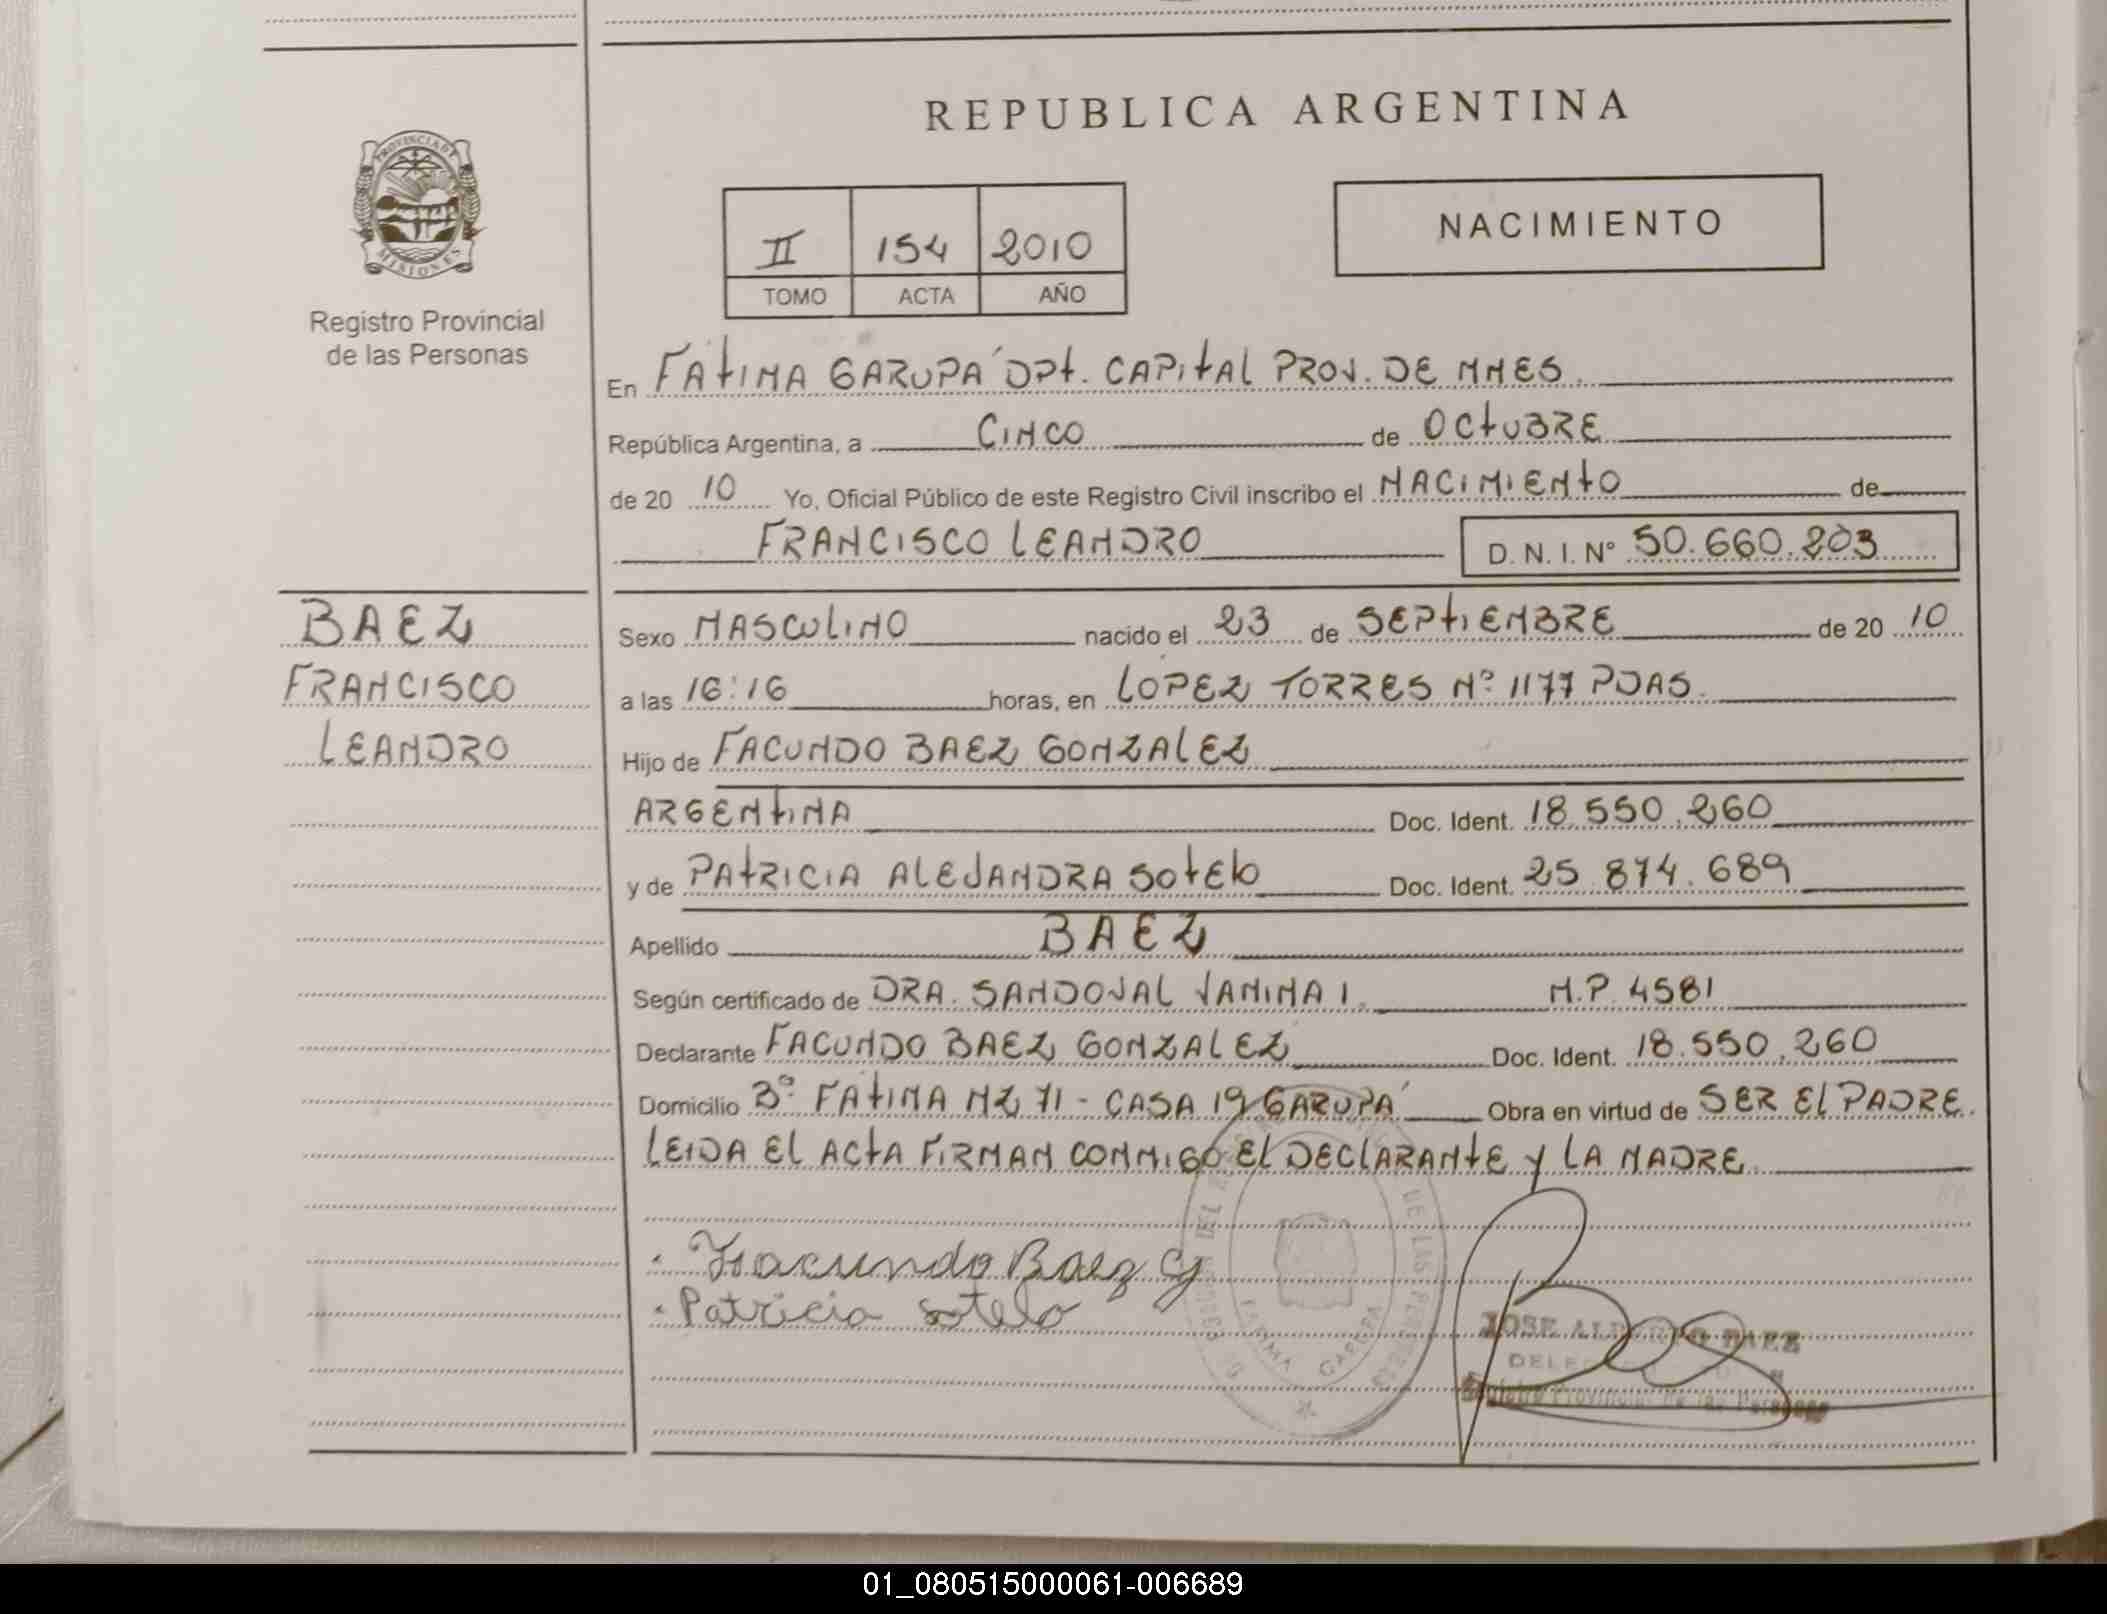 REPUBLICA ARGENTINA
PROVINCIA DE
MISIONES
Registro Provincial
de las Personas
NACIMIENTO
II 154 2010
TOMO ACTA AÑO
En FATIMA GARUPÁ DPt. CAPITAL PROV. DE MNES.
República Argentina, a CINCO de OCTUBRE
de 20 10 Yo, Oficial Público de este Registro Civil inscribo el NACIMIENTO de
FRANCISCO LEANDRO D. N. I. Nº 50.660.203
BAEZ
FRANCISCO
LEANDRO
Sexo MASCULINO nacido el 23 de SEPTIEMBRE de 20 10
a las 16:16 horas, en LOPEZ TORRES Nº 1177 PDAS.
Hijo de FACUNDO BAEZ GONZALEZ
ARGENTINA Doc. Ident. 18.550.260
y de PATRICIA ALEJANDRA SOTELO Doc. Ident. 25.874.689
Apellido BAEZ
Según certificado de DRA. SANDOVAL VANINA I. M.P. 4581
Declarante FACUNDO BAEZ GONZALEZ Doc. Ident. 18.550.260
Domicilio Bº FATIMA MZ 71 - CASA 19 GARUPÁ Obra en virtud de SER EL PADRE.
LEIDA EL ACTA FIRMAN CONMIGO EL DECLARANTE Y LA MADRE
Facundo Baez G
Patricia Sotelo
FATIMA GARUPA
JOSE ALBERTO BAEZ
Registro Provincial de las Personas
01_080515000061-006689